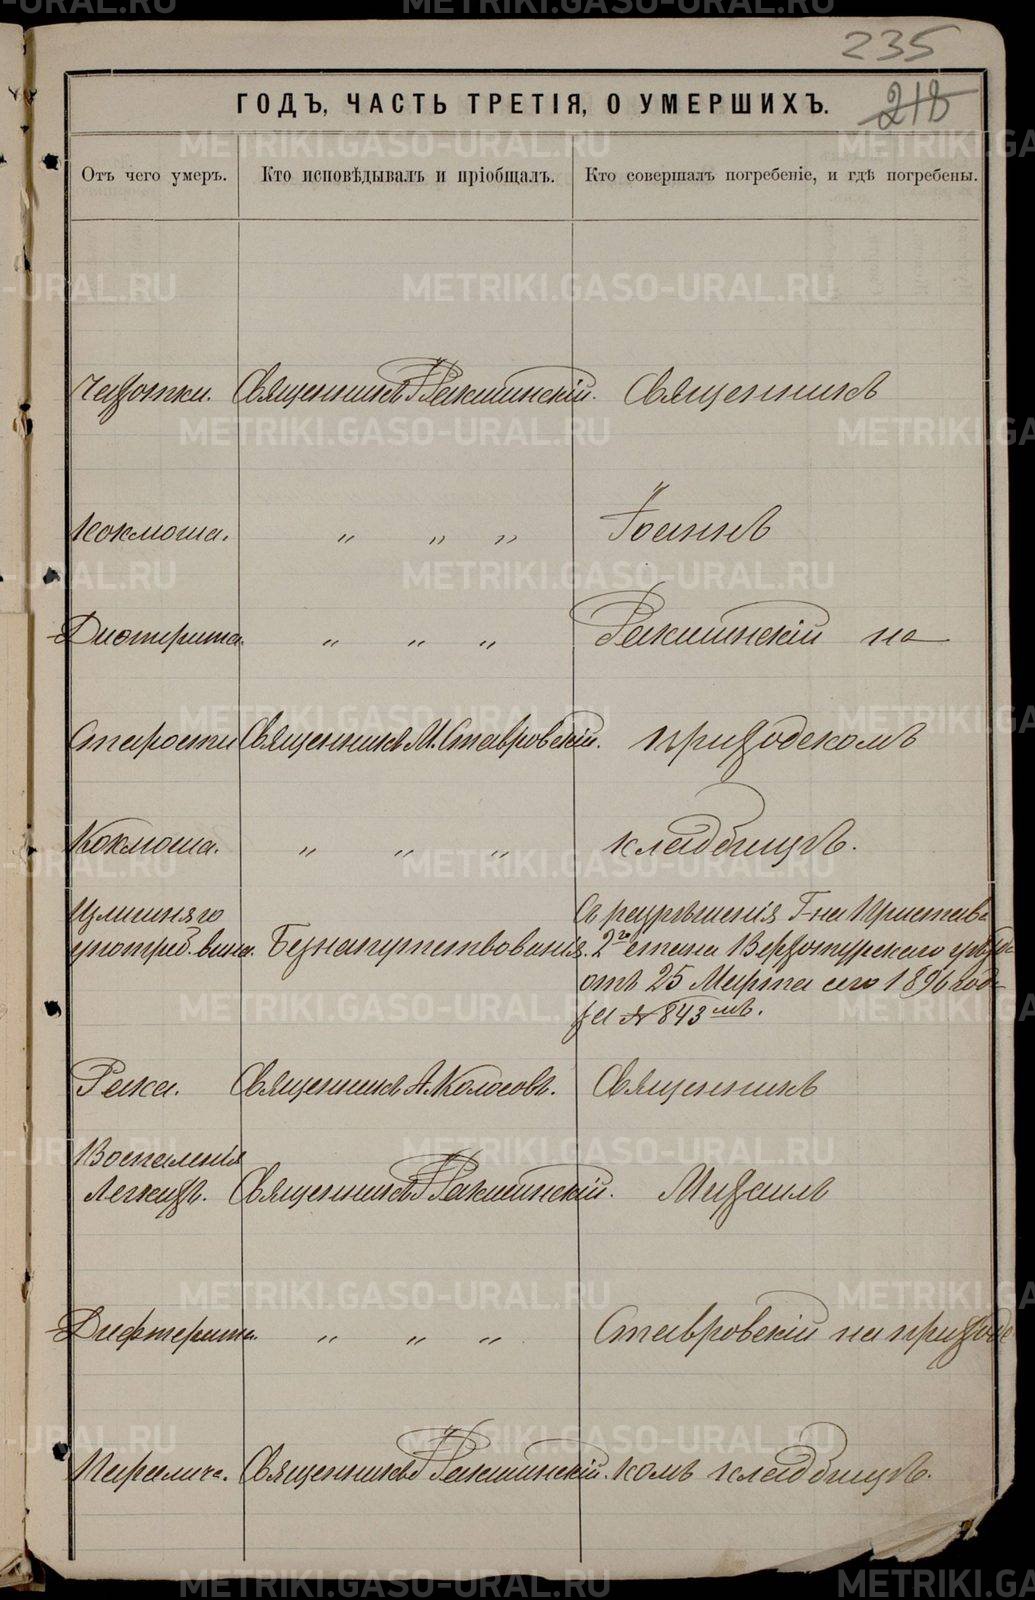 235
218
ГОДЪ, ЧАСТЬ ТРЕТІЯ, О УМЕРШИХЪ.
Отъ чего умеръ. Кто исповѣдывалъ и пріобщалъ. Кто совершалъ погребеніе, и гдѣ погребены.
Чахотки. Священникъ І. Ракшинскій. Священникъ
Коклюша. " " " Іоаннъ
Дифтерита. " " " Ракшинскій на
Старости Священникъ М. Ставровскій. приходскомъ
Коклюша. " " " кладбищѣ.
Излишняго
употреб. вина. Безнапутствованія.
Съ разрѣшенія Г-на Пристава
2го стана Верхотурскаго уѣзда
отъ 25 Марта сего 1896 года
за № 843 мъ.
Рака. Священникъ А. Колосовъ. Священникъ
Воспаленія
Легкихъ. Священникъ І. Ракшинскій. Михаилъ
Дифтерита. " " " Ставровскій на приходс
Паралича. Священникъ І. Ракшинскій. комъ кладбищѣ.
METRIKI.GASO-URAL.RU